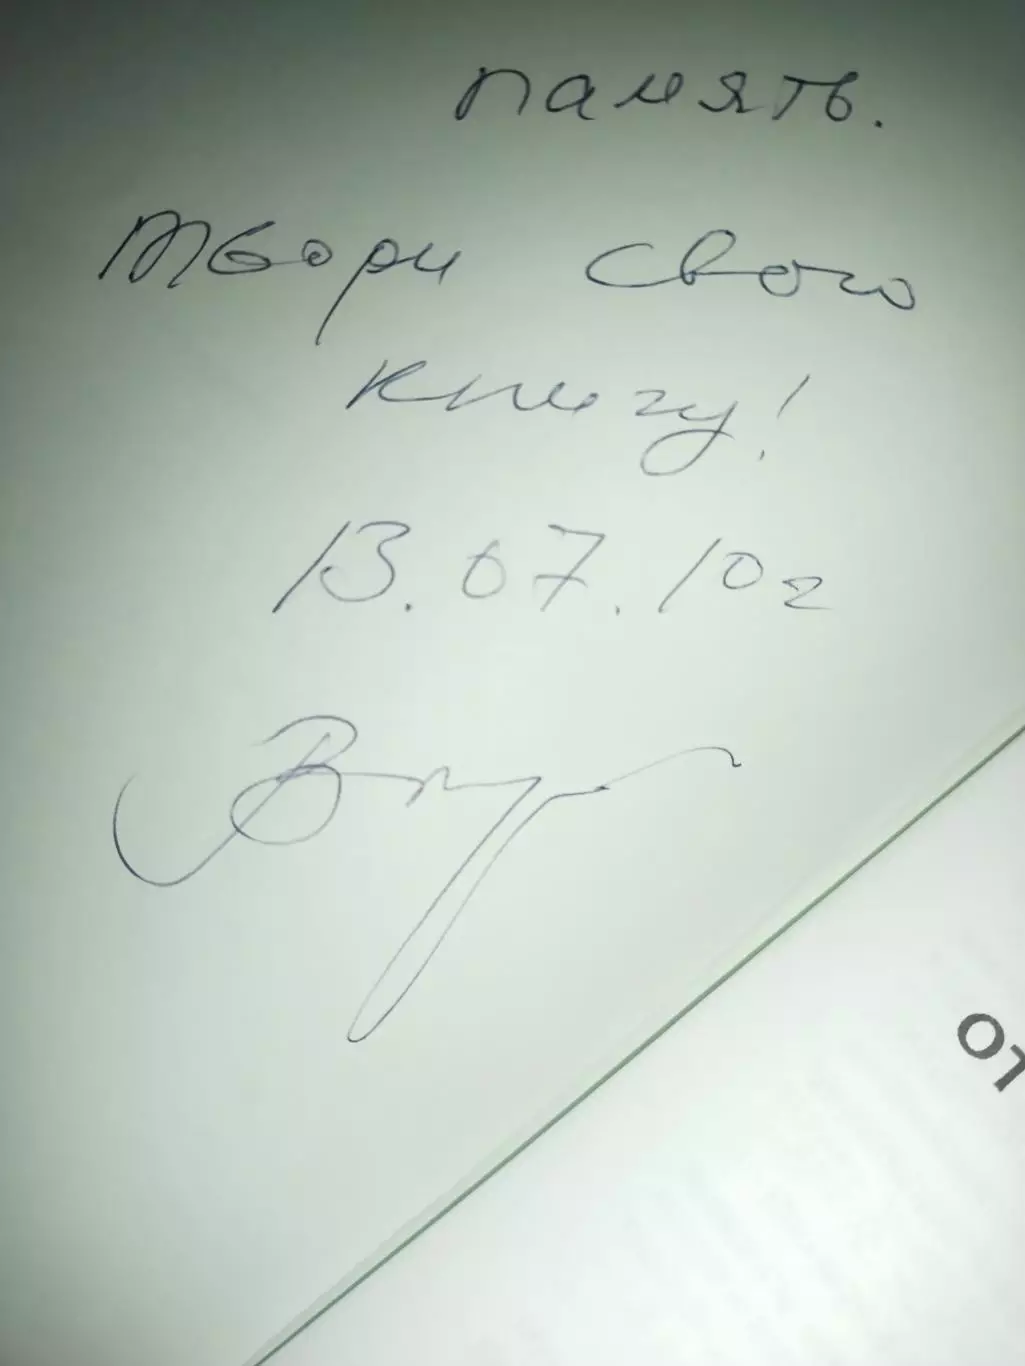 память.
Твори свою
книгу!
13.07.10г
от